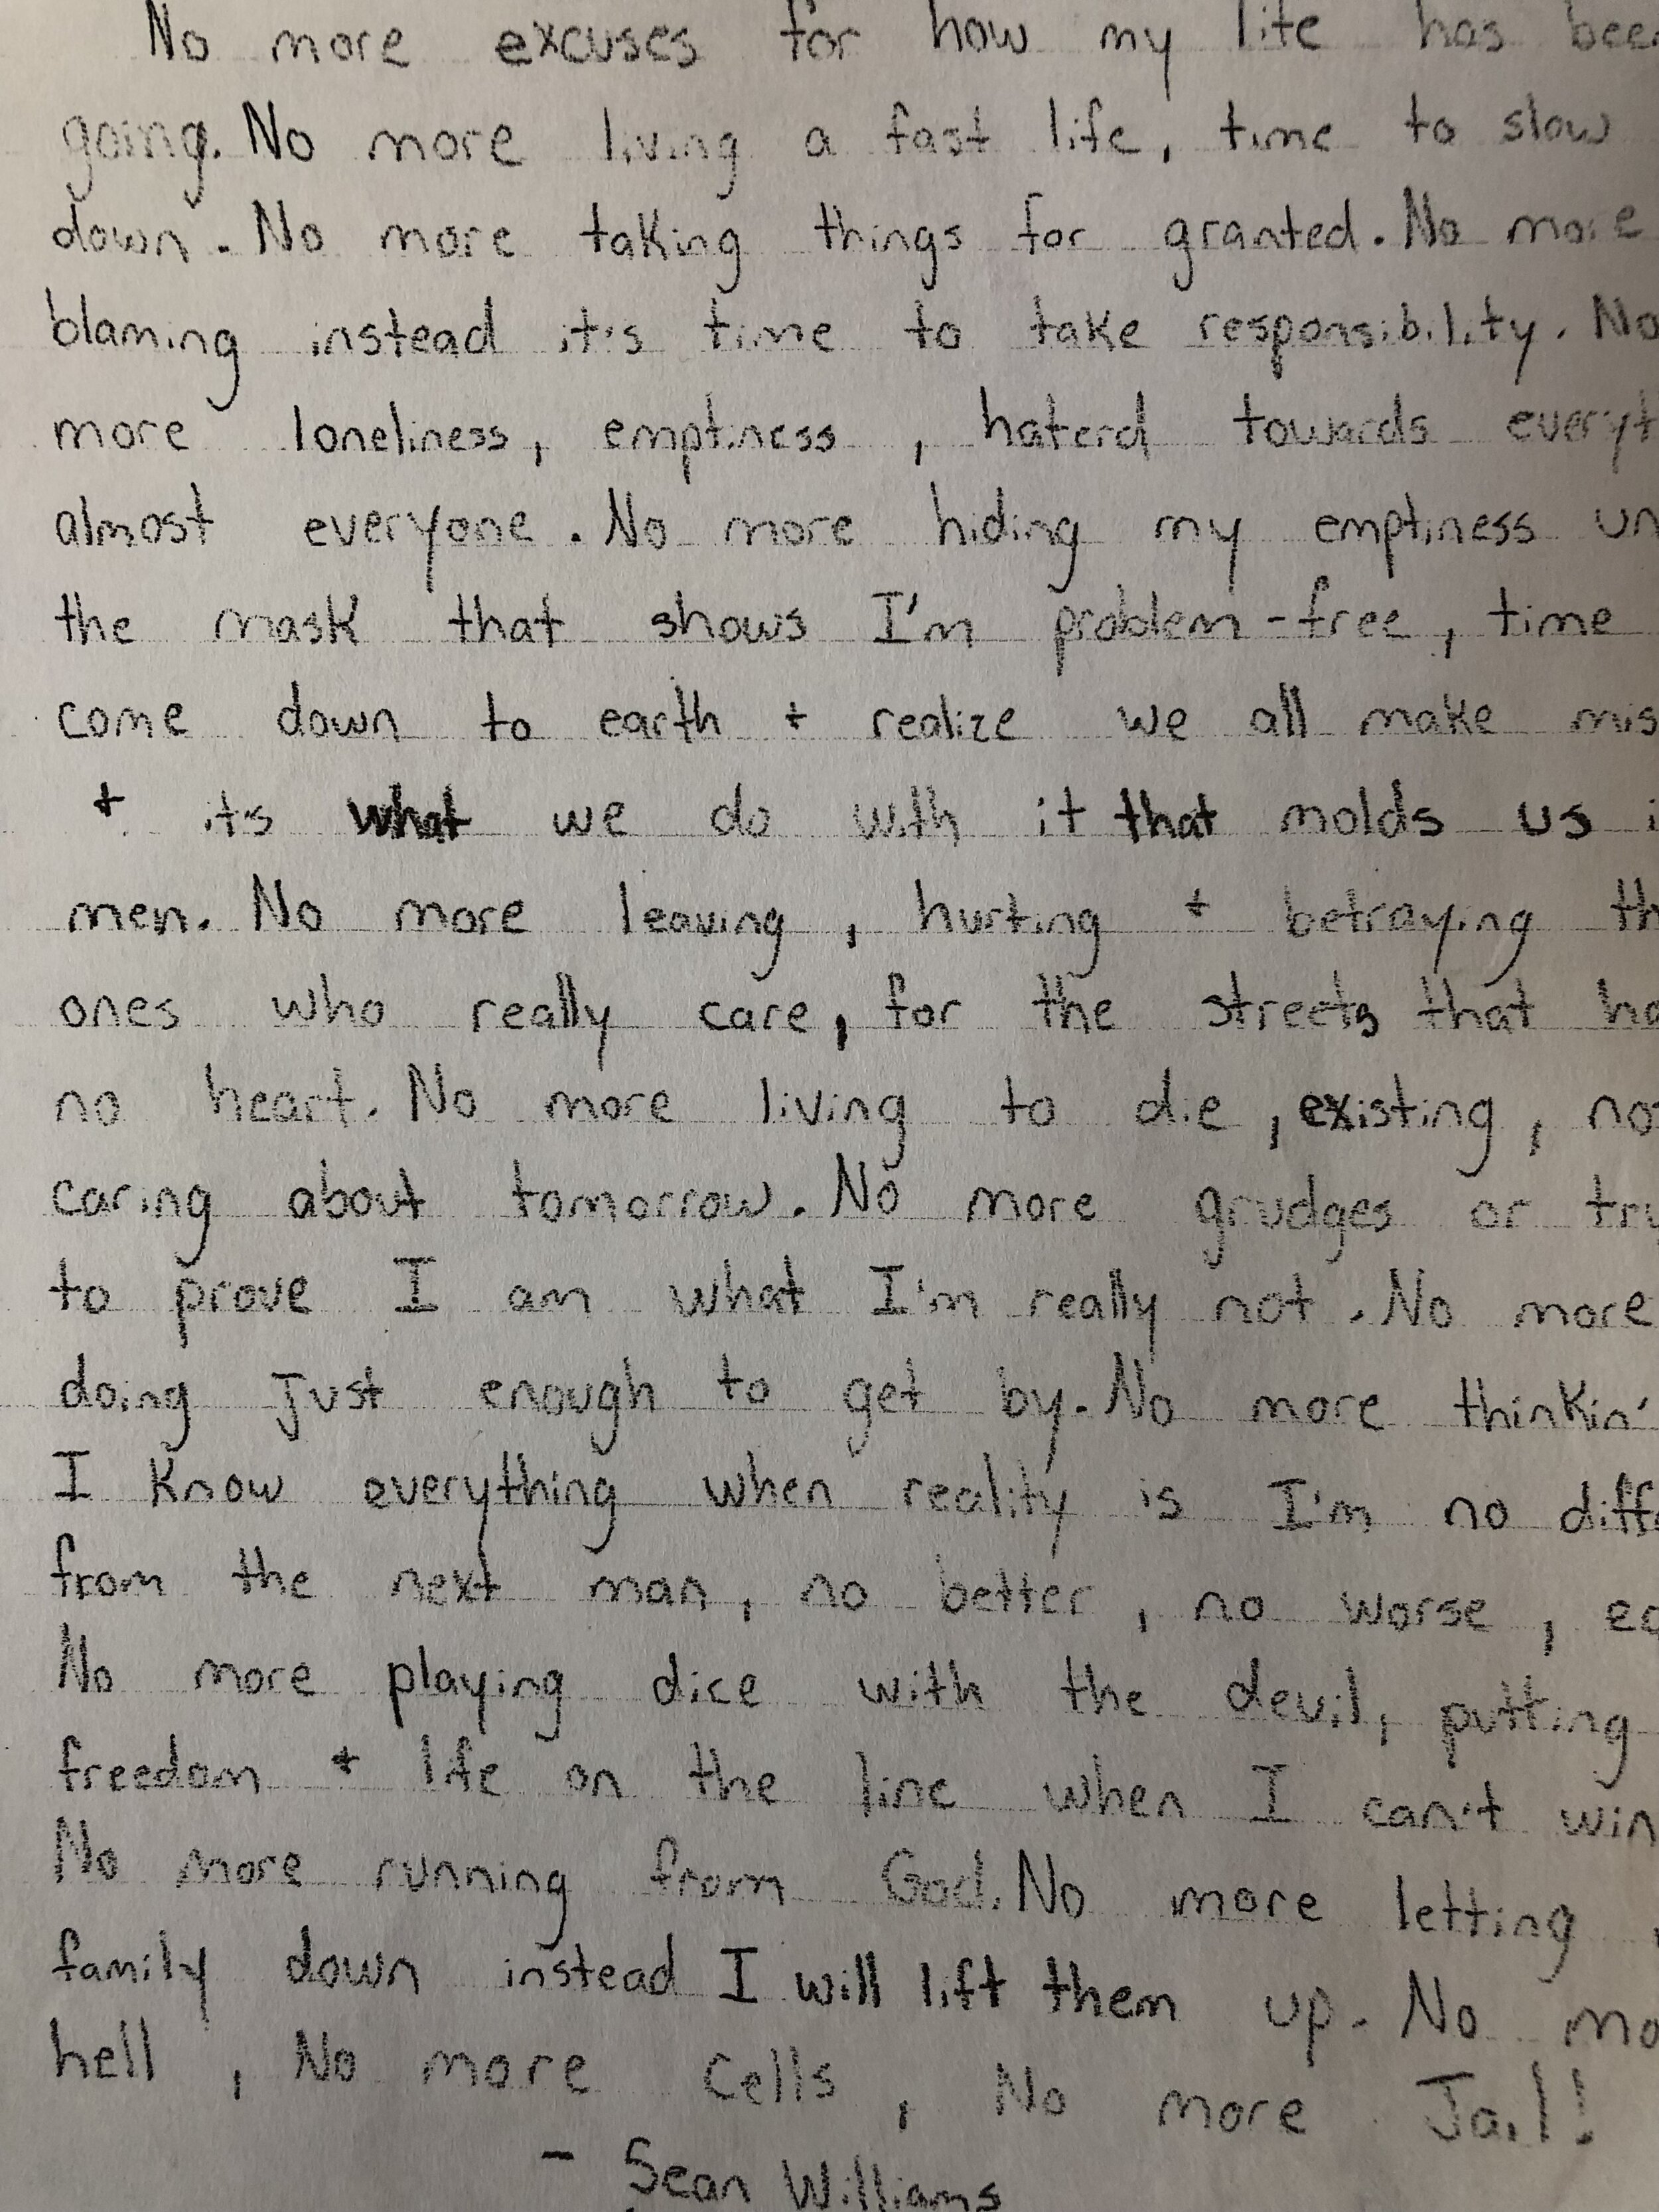 No more excuses for how my life has bee
going. No more living a fast life, time to slow
down. No more taking things for granted. No more
blaming instead it's time to take responsibility. No
more loneliness, emptiness, haterd towards everyt
almost everyone. No more hiding my emptiness un
the mask that shows I'm problem-free, time
come down to earth + realize we all make mis
+ it's what we do with it that molds us i
men. No more leaving, hurting + betraying th
ones who really care, for the streets that ha
no heart. No more living to die, existing, not
caring about tomorrow. No more grudges or try
to prove I am what I'm really not. No more
doing just enough to get by. No more thinkin'
I know everything when reality is I'm no diffe
from the next man, no better, no worse, eq
No more playing dice with the devil, putting
freedom + life on the line when I can't win
No more running from God. No more letting
family down instead I will lift them up. No mo
hell, No more cells, No more Jail!
- Sean Williams